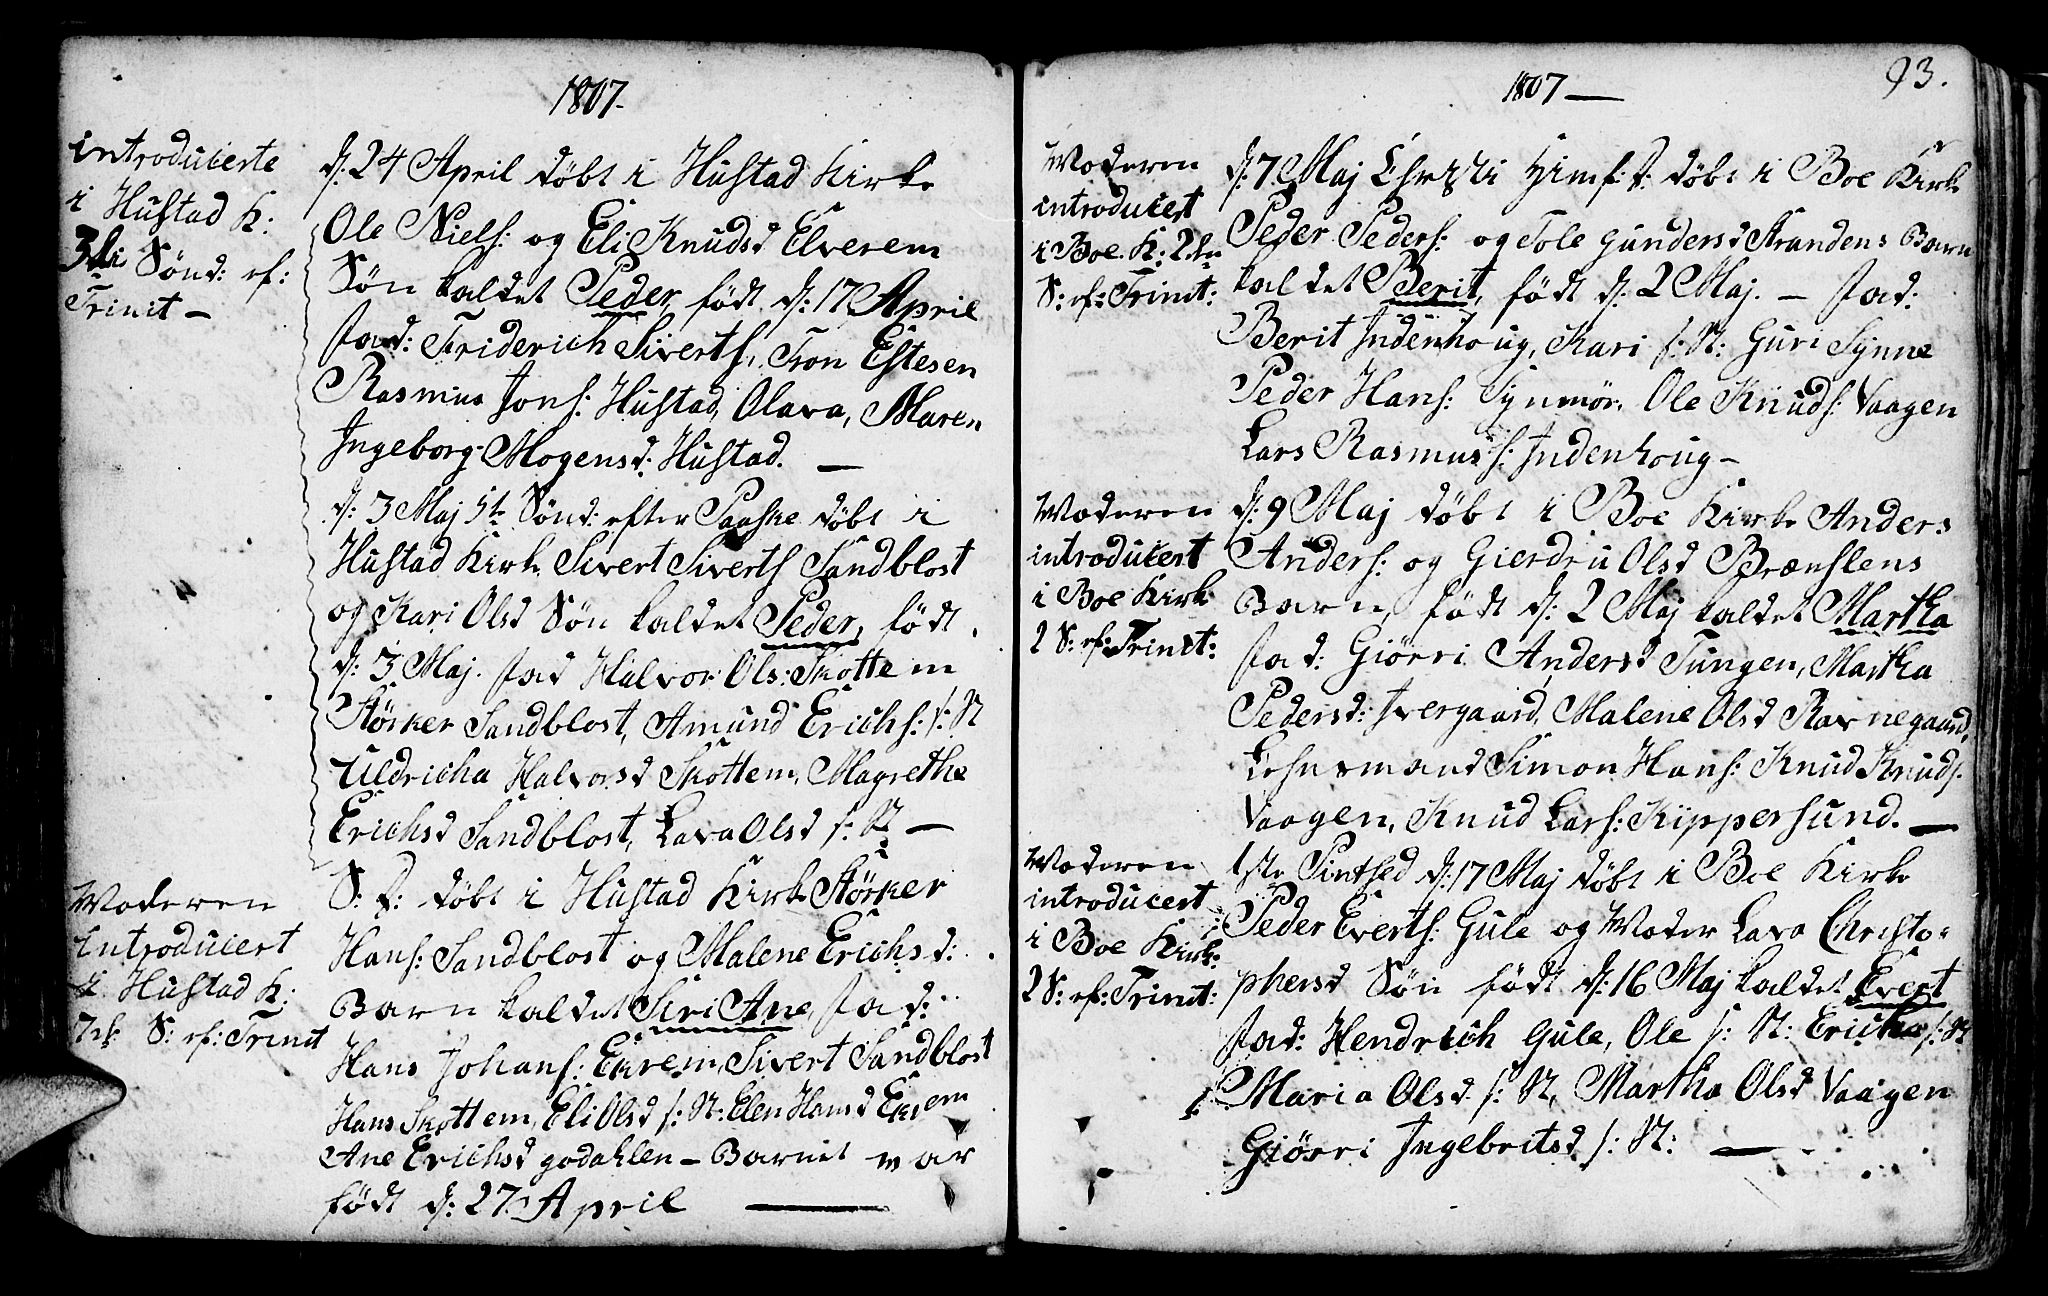 1807.
introducerte
i Hustad K:
3die Sønd: ef:
Trinit –
d: 24 April døbt i Hustad Kirke
Ole Niels: og Eli Knudsd Elverem
Søn kaldet Peder, født d: 17 April
fad: Friderich Siverts, Tron Estesen
Rasmus Jons: Hustad, Olava, Maren
Ingeborg Mogensd: Hustad. —
d: 3 Maj 5te Sønd: efter Paaske døbt i
Hustad Kirke Sivert Siverts Sandblost
og Kari Olsd Søn kaldet Peder, født
d: 3 Maj. fad Halvor Ols: Skottem
Störker Sandblost, Amund Erichs: s: St
Uldricha Halvorsd Skottem, Magrethe
Erichsd Sandblost, Lava Olsd s: St —
Moderen
introducert
i Hustad K:
7de S: ef: Trinit
S: D: døbt i Hustad Kirke Störker
Hans: Sandblost og Malene Erichsd:
Barn kaldet Siri Ane, fad:
Hans Johans: Ekrem, Sivert Sandblost
Hans Skottem, Eli Olsd s: St: Elen Hansd Ekrem
Ane Erichsd godahlen – Barnet var
født d: 27 April —
1807 —
93.
Moderen
introducert
i Boe K: 2den
S: ef: Trinit:
d: 7 Maj Christi Himf: D: døbt i Boe Kirke
Peder Peders: og Tole Gundersd Strandens Barn
kaldet Berit, født d: 2 Maj. – fad:
Berit Indenhoug, Kari s: St: Guri Synne
Peder Hans: Synmör, Ole Knuds: Vaagen
Lars Rasmus: Indenhoug –
Moderen
introducert
i Boe Kirke
2 S: ef: Trinit:
d: 9 Maj døbt i Boe Kirke Anders
Anders: og Gierdru Olsd Brænslens
Barn, født d: 2 Maj kaldet Martha
fad: Giörri Andersd Tungen, Martha
Pedersd: Ivergaard, Malene Olsd Ravnegaard,
Lehnsmand Simon Hans: Knud Knuds:
Vaagen, Knud Lars: Kippersund. —
Moderen
introducert
i Boe Kirke
2 S: ef: Trinit:
1ste Pintsed d: 17 Maj døbt i Boe Kirke
Peder Everts: Gule og Moder Lava Christo=
phersd Søn født d: 16 Maj kaldet Evert
fad: Hendrich Gule, Ole s: St: Ericha s: St
Maria Olsd s: St, Martha Olsd Vaagen
Giörri Ingebritsd s: St: —